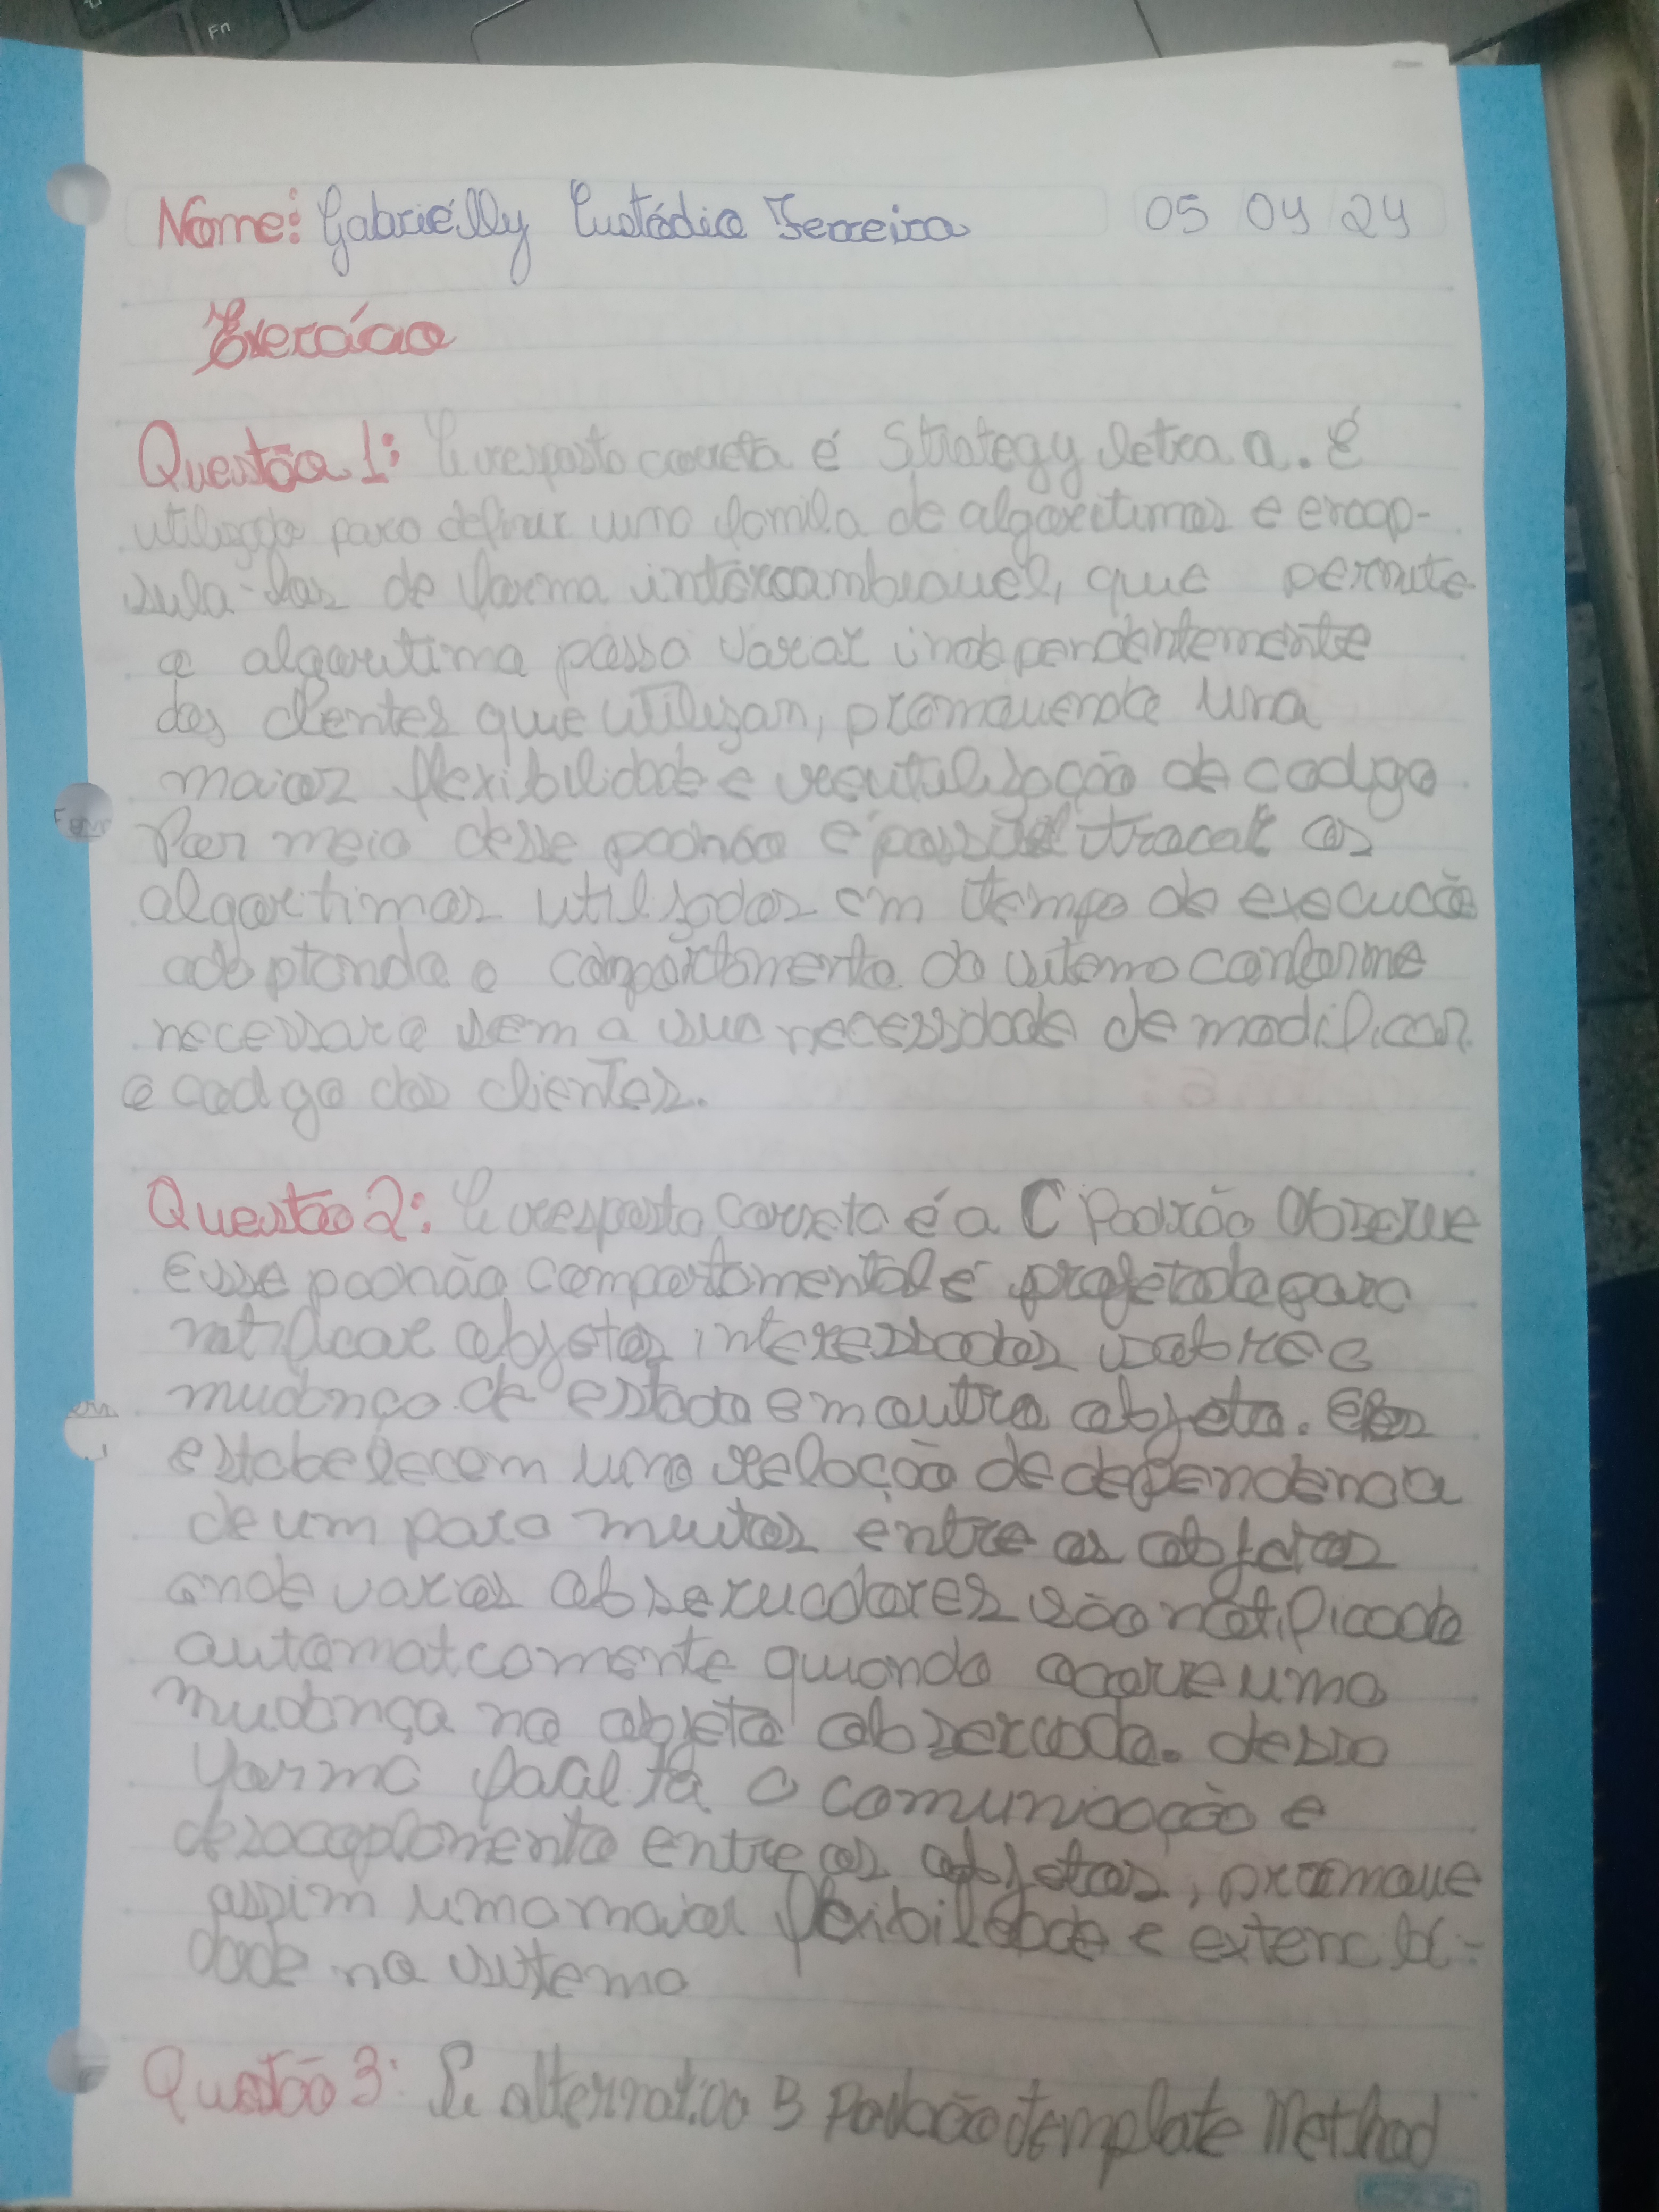 Fn
Nome: Gabriélly Custódio Ferreira 05 04 24
Exercício
Questão 1: A resposta correta é Strategy letra a. É
utilizado para definir uma familia de algoritimos e encap-
sula-los de forma intercambiavel, que permite
o algoritimo possa variar independentemente
dos clientes que utilizam, promovendo uma
maior flexibilidade e reutilização de codigo
Por meio desse padrão é possivel trocar os
algoritimos utilizados em tempo de execução
adaptando o comportamento do sistema conforme
necessario sem a sua necessidade de modificar
o codigo dos clientes.
Questão 2: A resposta correta é a C Padrão Observe
Esse padrão comportamental é projetado para
notificar objetos interessados sobre a
mudança de estado em outro objeto. Eles
estabelecem uma relação de dependencia
de um para muitos entre os objetos
onde varios observadores são notificado
automaticamente quando ocorre uma
mudança no objeto observado. dessa
forma facilita a comunicação e
desacoplamento entre os objetos, promove
assim uma maior flexibilidade e extencibi-
dade no sistema
Questão 3: A alternativa B Padrão template Method